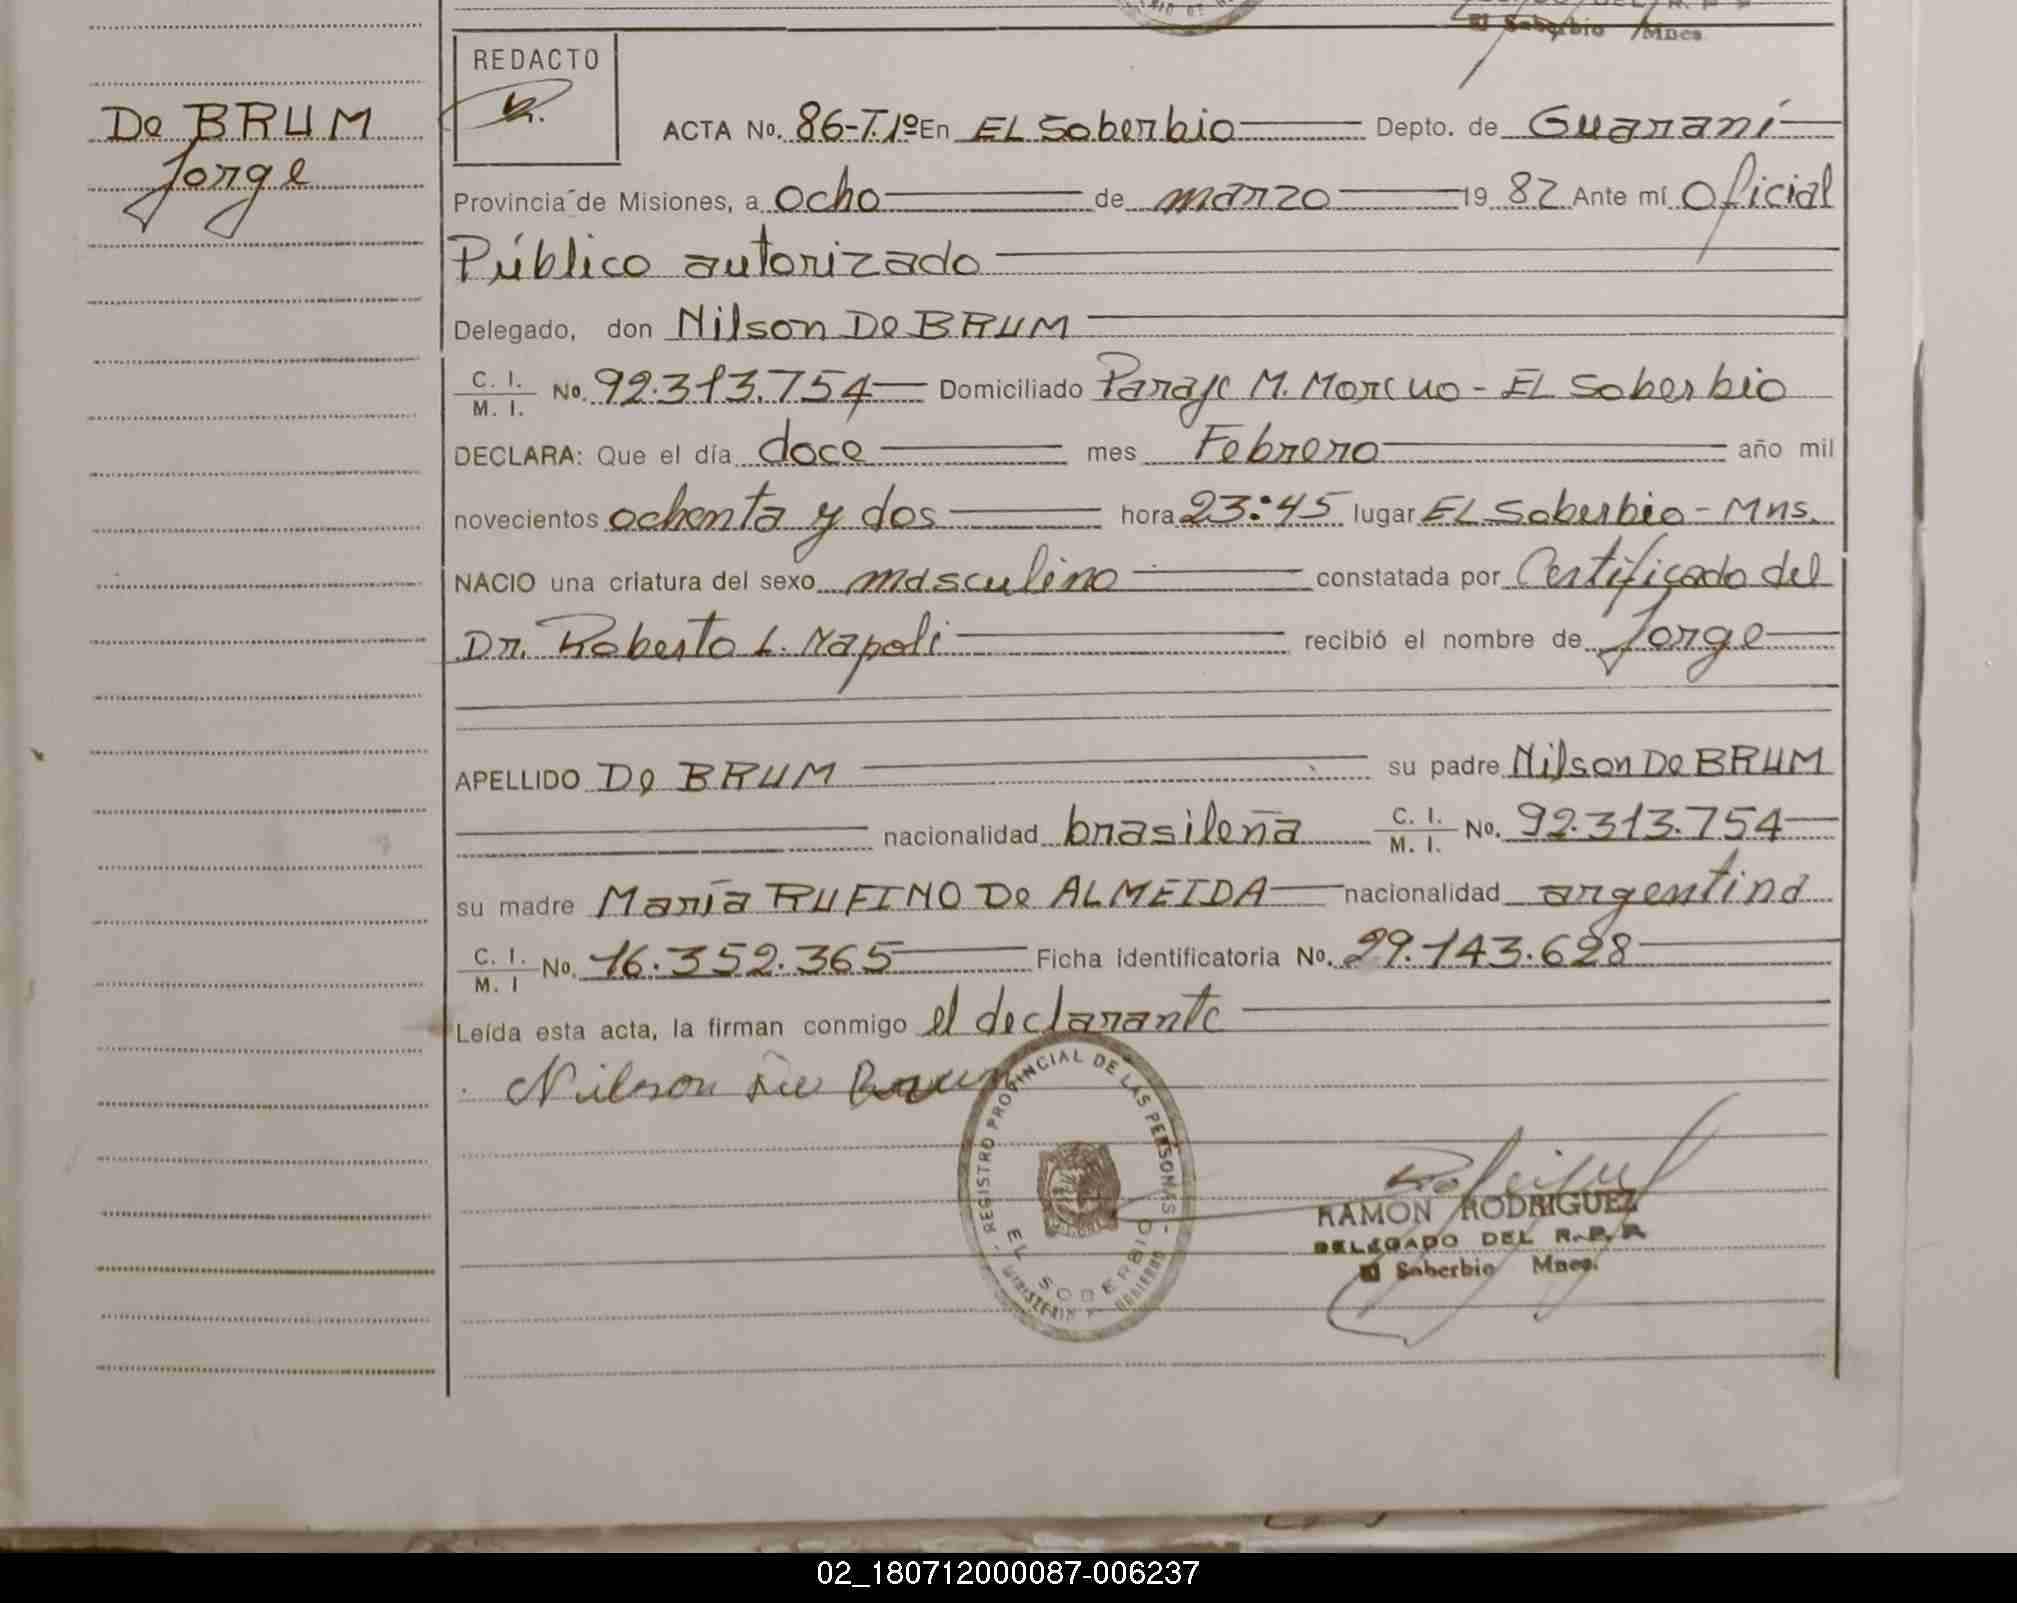 El Soberbio Mnes
REDACTO
De BRUM
Jorge
ACTA No. 86-T.1º En EL Soberbio Depto. de Guaraní
Provincia de Misiones, a ocho de marzo 19 82 Ante mí Oficial
Público autorizado
Delegado, don Nilson De BRUM
C. I.
M. I. No. 92.313.754 Domiciliado Paraje M. Moreno - EL Soberbio
DECLARA: Que el día doce mes Febrero año mil
novecientos ochenta y dos hora 23:45 lugar EL Soberbio - Mns.
NACIO una criatura del sexo masculino constatada por Certificado del
Dr. Roberto L. Napoli recibió el nombre de Jorge
APELLIDO De BRUM su padre Nilson De BRUM
nacionalidad brasileña C. I.
M. I. No. 92.313.754
su madre María RUFINO De ALMEIDA nacionalidad argentina
C. I.
M. I No. 16.352.365 Ficha identificatoria No. 29.143.628
Leída esta acta, la firman conmigo el declarante
Nilson De Brum
REGISTRO PROVINCIAL DE LAS PERSONAS
EL SOBERBIO
MINISTERIO DE GOBIERNO
RAMON RODRIGUEZ
DELEGADO DEL R.P.P.
El Soberbio Mnes.
02_180712000087-006237